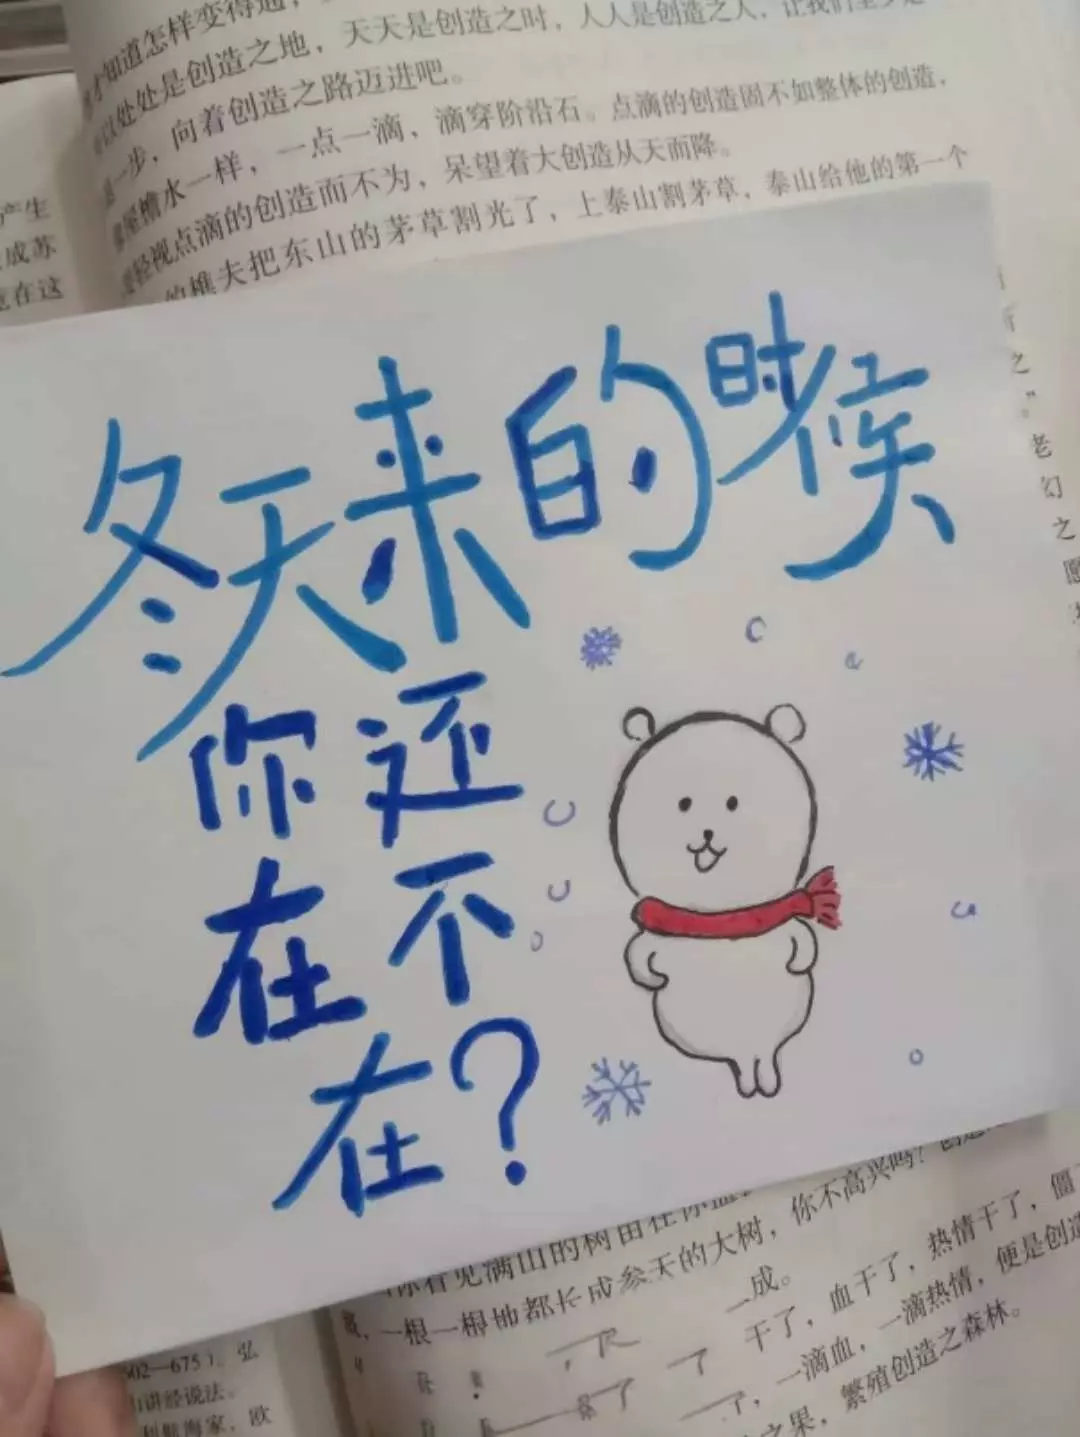 才知道怎样变得通，
以处处是创造之地，天天是创造之时，人人是创造之人，让我们至少走
一步，向着创造之路迈进吧。
屋檐水一样，一点一滴，滴穿阶沿石。点滴的创造固不如整体的创造，
轻视点滴的创造而不为，呆望着大创造从天而降。
的樵夫把东山的茅草割光了，上泰山割茅草，泰山给他的第一个
产生
成苏
在这
冬天来的时候
你还
在不
在？
之”
老
幻
之
愿
你看见满山的树苗在你
一根一根地都长成参天的大树，你不高兴吗？创造
成。
干了，血干了，热情干了，僵
了，一滴血，一滴热情，便是创造
之果，繁殖创造之森林。
602—675），弘
讲经说法。
航海家，欧